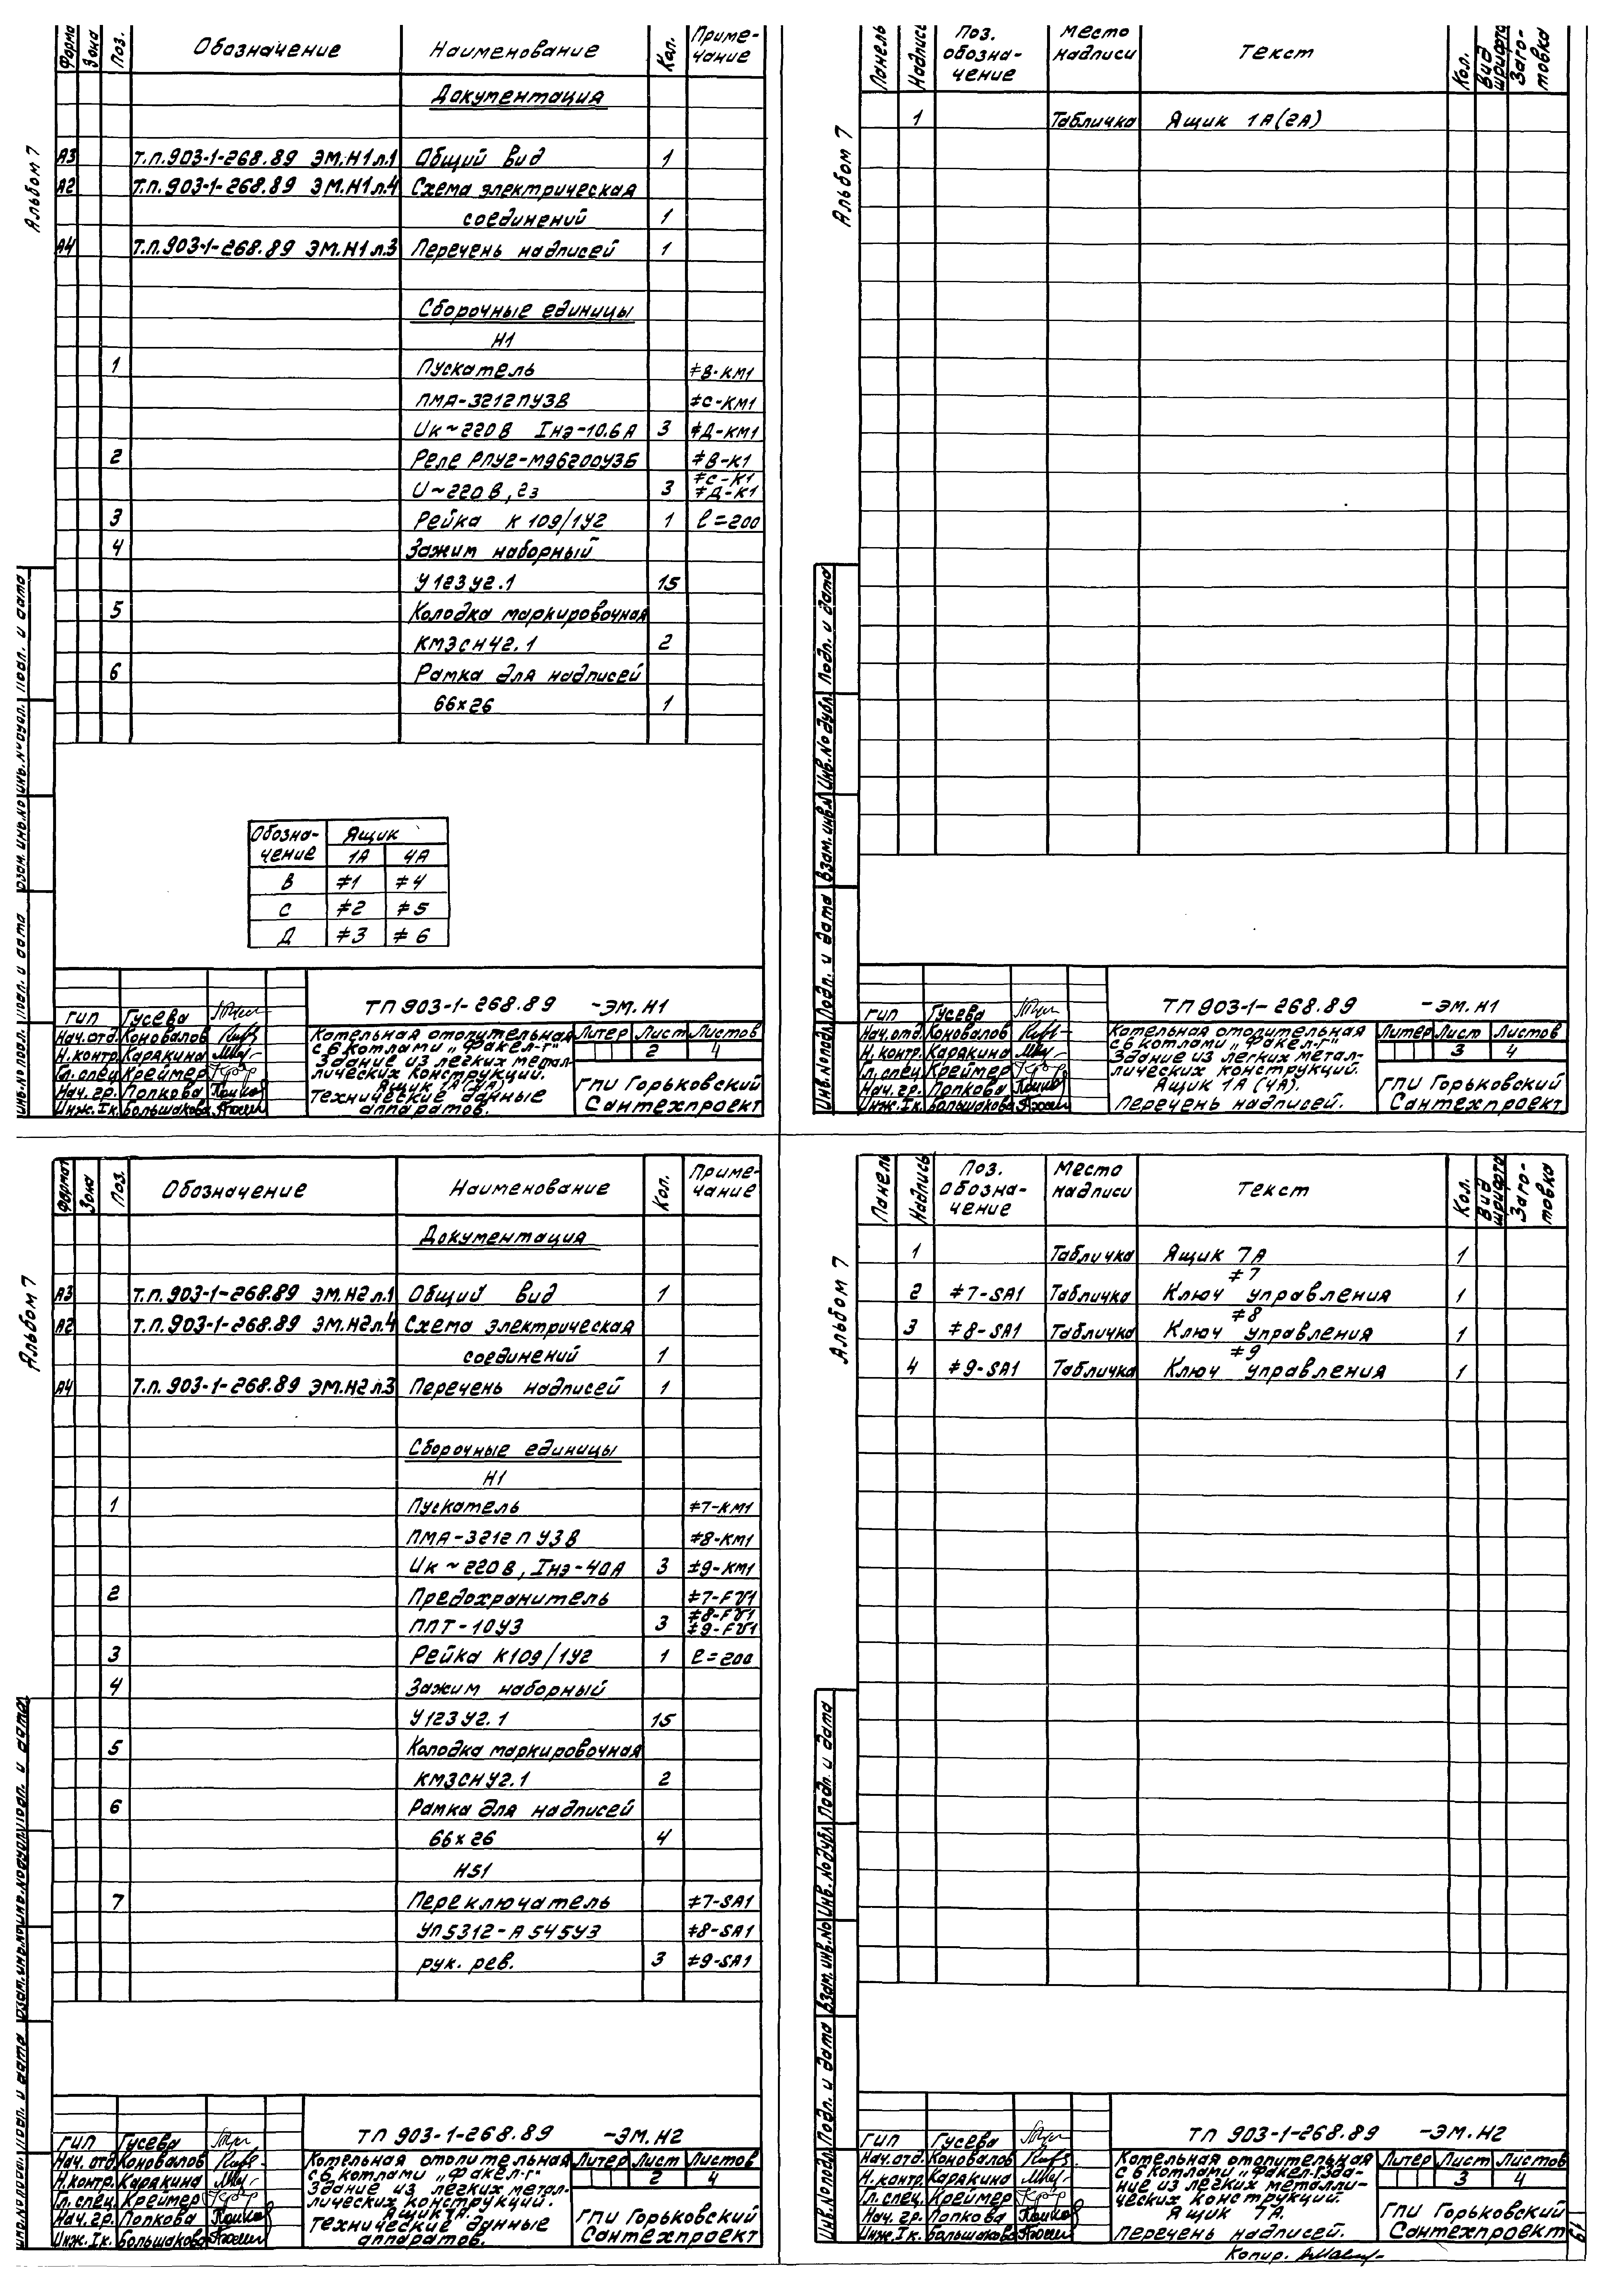 Альбом 7
Форма Зона Поз. Обозначение Наименование Кол. Приме-
чание
Документация
А3 Т.П.903-1-268.89 ЭМ.Н1л.1 Общий вид 1
А2 Т.П.903-1-268.89 ЭМ.Н1л.4 Схема электрическая
соединений 1
А4 Т.П.903-1-268.89 ЭМ.Н1л.3 Перечень надписей 1
Сборочные единицы
Н1
1 Пускатель ≠В-КМ1
ПМА-3212ПУ3В ≠С-КМ1
Uк~220В Iнэ-10.6А 3 ≠Д-КМ1
2 Реле РПУ2-М96200У3Б ≠В-К1
U~220В, 2з 3 ≠С-К1
≠Д-К1
3 Рейка К109/1У2 1 ℓ=200
4 Зажим наборный
У123У2.1 15
5 Колодка маркировочная
КМ3СНУ2.1 2
6 Рамка для надписей
66×26 1
Обозна-
чение Ящик
1А 4А
В ≠1 ≠4
С ≠2 ≠5
Д ≠3 ≠6
Инв.№подл. Подп. и дата Взам.инв.№ Инв.№дубл. Подп. и дата
ТП 903-1-268.89 -ЭМ.Н1
ГИП Гусева
Нач.отд. Коновалов
Н.контр. Карякина
Гл.спец. Креймер
Нач.гр. Попкова
Инж.Iк. Большакова
Котельная отопительная
с 6 котлами „Факел-Г"
Здание из легких метал-
лических конструкций.
Ящик 1А(4А).
Технические данные
аппаратов.
Литер Лист Листов
2 4
ГПИ Горьковский
Сантехпроект
Альбом 7
Панель Надпись Поз.
обозна-
чение Место
надписи Текст Кол. Вид
шрифта Заго-
товка
1 Табличка Ящик 1А(2А)
Инв.№подл. Подп. и дата Взам.инв.№ Инв.№дубл. Подп. и дата
ТП 903-1-268.89 -ЭМ.Н1
ГИП Гусева
Нач.отд. Коновалов
Н.контр. Карякина
Гл.спец. Креймер
Нач.гр. Попкова
Инж.Iк. Большакова
Котельная отопительная
с 6 котлами „Факел-Г"
Здание из легких метал-
лических конструкций.
Ящик 1А (4А).
Перечень надписей.
Литер Лист Листов
3 4
ГПИ Горьковский
Сантехпроект
Альбом 7
Формат Зона Поз. Обозначение Наименование Кол. Приме-
чание
Документация
А3 Т.П.903-1-268.89 ЭМ.Н2л.1 Общий вид 1
А2 Т.П.903-1-268.89 ЭМ.Н2л.4 Схема электрическая
соединений 1
А4 Т.П.903-1-268.89 ЭМ.Н2л.3 Перечень надписей 1
Сборочные единицы
Н1
1 Пускатель ≠7-КМ1
ПМА-3212ПУ3В ≠8-КМ1
Uк~220В, Iнэ-40А 3 ≠9-КМ1
2 Предохранитель ≠7-FU1
ППТ-10У3 3 ≠8-FU1
≠9-FU1
3 Рейка К109/1У2 1 ℓ=200
4 Зажим наборный
У123У2.1 15
5 Колодка маркировочная
КМ3СНУ2.1 2
6 Рамка для надписей
66×26 4
Н51
7 Переключатель ≠7-SA1
УП5312-А545У3 ≠8-SA1
рук. рев. 3 ≠9-SA1
Инв.№подл. Подп. и дата Взам.инв.№ Инв.№дубл. Подп. и дата
ТП 903-1-268.89 -ЭМ.Н2
ГИП Гусева
Нач.отд. Коновалов
Н.контр. Карякина
Гл.спец. Креймер
Нач.гр. Попкова
Инж.Iк. Большакова
Котельная отопительная
с 6 котлами „Факел-Г"
Здание из легких метал-
лических конструкций.
Ящик 7А.
Технические данные
аппаратов.
Литер Лист Листов
2 4
ГПИ Горьковский
Сантехпроект
Альбом 7
Панель Надпись Поз.
Обозна-
чение Место
надписи Текст Кол. Вид
шрифта Заго-
товка
1 Табличка Ящик 7А 1
2 ≠7-SA1 Табличка ≠7
Ключ управления 1
3 ≠8-SA1 Табличка ≠8
Ключ управления 1
4 ≠9-SA1 Табличка ≠9
Ключ управления 1
Инв.№подл. Подп. и дата Взам.инв.№ Инв.№дубл. Подп. и дата
ТП 903-1-268.89 -ЭМ.Н2
ГИП Гусева
Нач.отд. Коновалов
Н.контр. Карякина
Гл.спец. Креймер
Нач.гр. Попкова
Инж.Iк. Большакова
Котельная отопительная
с 6 котлами „Факел-Г"Зда-
ние из легких металли-
ческих конструкций.
Ящик 7А.
Перечень надписей.
Литер Лист Листов
3 4
ГПИ Горьковский
Сантехпроект
Копир.